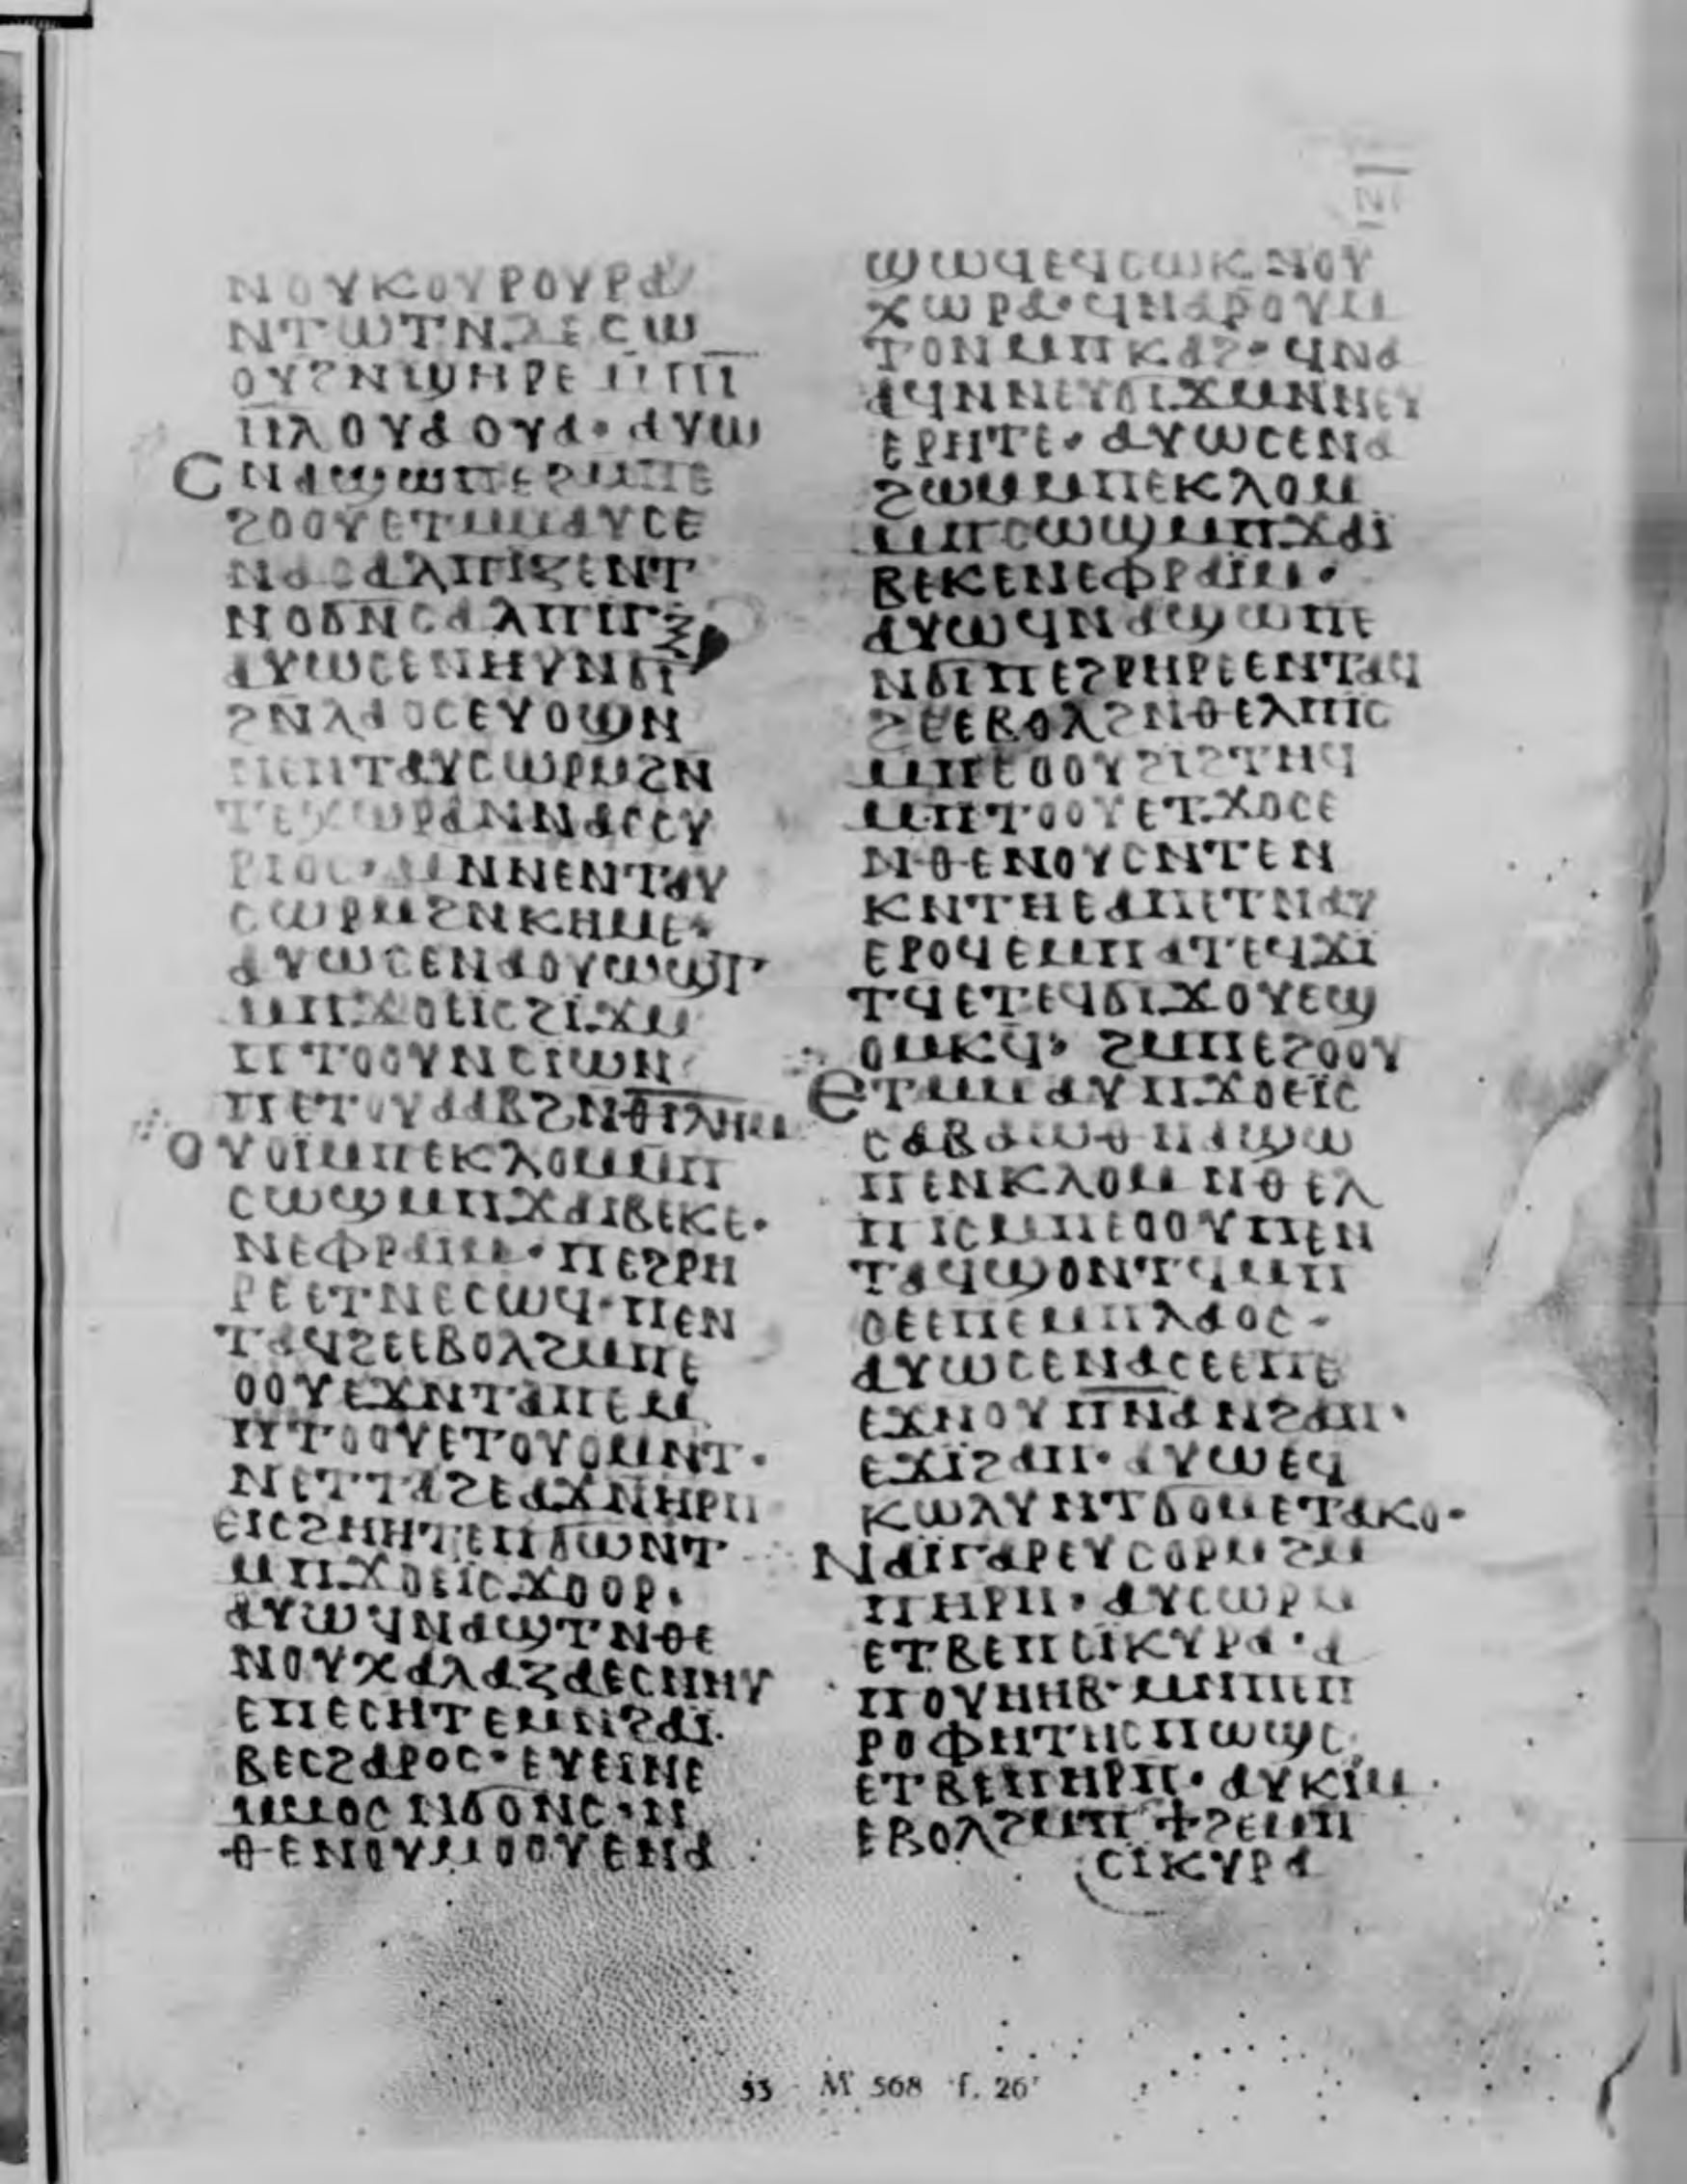 ⲛⲟⲩⲕⲟⲩⲣⲟⲩⲣⲁ
ⲛⲧⲱⲧⲛ.ⲇⲉⲥⲱ
ⲟⲩϩⲛϣⲏⲣⲉ ⲙⲡⲓ
ⲏⲗ ⲟⲩⲁ ⲟⲩⲁ· ⲁⲩⲱ
ⲥⲛⲁϣⲱⲡⲉϩⲙⲡⲉ
ϩⲟⲟⲩⲉⲧⲙⲙⲁⲩⲥⲉ
ⲛⲁⲥⲁⲗⲡⲓⲍⲉⲛⲧ
ⲛⲟϭⲛⲥⲁⲗⲡⲓⲅⲝ
ⲁⲩⲱⲥⲉⲛⲏⲩⲛϭⲓ
ϩⲛⲗⲁⲟⲥⲉⲩⲟϣⲛ
ⲛⲉⲛⲧⲁⲩⲥⲱⲣⲙϩⲛ
ⲧⲉⲭⲱⲣⲁⲛⲛⲁⲥⲥⲩ
ⲣⲓⲟⲥ·ⲙⲛⲛⲉⲛⲧⲁⲩ
ⲥⲱⲣⲙϩⲛⲕⲏⲙⲉ·
ⲁⲩⲱⲥⲉⲛⲁⲟⲩⲱϣⲧ
ⲙⲡϫⲟⲉⲓⲥϩⲓϫⲙ
ⲡⲧⲟⲟⲩⲛⲥⲓⲱⲛ
ⲡⲉⲧⲟⲩⲁⲁⲃϩⲛⲑⲓⲗⲏⲙ
ⲟⲩⲟⲓⲙⲡⲉⲕⲗⲟⲙⲙⲡ
ⲥⲱϣⲙⲡϫⲁⲓⲃⲉⲕⲉ·
ⲛⲉⲫⲣⲁⲓⲙ·ⲡⲉϩⲣⲏ
ⲣⲉⲉⲧⲛⲉⲥⲱϥ·ⲡⲉⲛ
ⲧⲁϥϩⲉⲉⲃⲟⲗϩⲙⲡⲉ
ⲟⲟⲩⲉϫⲛⲧⲁⲡⲉⲙ
ⲡⲧⲟⲟⲩⲉⲧⲟⲩⲟⲙⲛⲧ·
ⲛⲉⲧⲧⲁϩⲉⲁϫⲛⲏⲣⲡ
ⲉⲓⲥϩⲏⲏⲧⲉⲡϭⲱⲛⲧ
ⲙⲡϫⲟⲉⲓⲥϫⲟⲟⲣ·
ⲁⲩⲱϥⲛⲁϣⲧⲛⲑⲉ
ⲛⲟⲩⲭⲁⲗⲁⲍⲁⲉⲥⲛⲏⲩ
ⲉⲡⲉⲥⲏⲧⲉⲙⲛϩⲁⲓ̈
ⲃⲉⲥϩⲁⲣⲟⲥ·ⲉⲩⲉⲓⲛⲉ
ⲙⲙⲟⲥⲛϭⲟⲛⲥ·ⲛ
ⲑⲉⲛⲟⲩⲙⲟⲟⲩⲉⲛⲁ
ϣⲱϥⲉϥⲥⲱⲕⲛⲟⲩ
ⲭⲱⲣⲁ·ϥⲛⲁⲣⲟⲩⲙ
ⲧⲟⲛⲙⲡⲕⲁϩ·ϥⲛⲁ
ⲁϥⲛⲛⲉⲩϭⲓϫⲙⲛⲛⲉⲩ
ⲉⲣⲏⲧⲉ·ⲁⲩⲱⲥⲉⲛⲁ
ϩⲱⲙⲙⲡⲉⲕⲗⲟⲙ
ⲙⲡⲥⲱϣⲙⲡϫⲁⲓ̈
ⲃⲉⲕⲉⲛⲉⲫⲣⲁⲓ̈ⲙ·
ⲁⲩⲱϥⲛⲁϣⲱⲡⲉ
ⲛϭⲓⲡⲉϩⲣⲏⲣⲉⲉⲛⲧⲁϥ
ϩⲉⲉⲃⲟⲗϩⲛⲑⲉⲗⲡⲓⲥ
ⲙⲡⲉⲟⲟⲩϩⲓϩⲧⲏϥ
ⲙⲡⲧⲟⲟⲩⲉⲧϫⲟⲥⲉ
ⲛⲑⲉⲛⲟⲩⲥⲛⲧⲉⲛ
ⲕⲛⲧⲏⲉⲁⲡⲉⲧⲛⲁⲩ
ⲉⲣⲟϥⲉⲙⲡⲁⲧⲉϥϫⲓ
ⲧϥⲉⲧⲉϥϭⲓϫⲟⲩⲉϣ
ⲟⲙⲕϥ· ϩⲙⲡⲉϩⲟⲟⲩ
ⲉⲧⲙⲙⲁⲩⲡϫⲟⲉⲓ̈ⲥ
ⲥⲁⲃⲁⲱⲑⲛⲁϣⲱ
ⲡⲉⲛⲕⲗⲟⲙ ⲛⲑⲉⲗ
ⲡⲓⲥⲙⲡⲉⲟⲟⲩⲡⲉⲛ
ⲧⲁϥϣⲟⲛⲧϥⲙⲡ
ⲥⲉⲉⲡⲉⲙⲡⲗⲁⲟⲥ·
ⲁⲩⲱⲥⲉⲛⲁⲥⲉⲉⲡⲉ
ⲉϫⲛⲟⲩⲡⲛⲁⲛϩⲁⲡ·
ⲉϫⲓ̈ϩⲁⲡ·ⲁⲩⲱⲉϥ
ⲕⲱⲗⲩⲛⲧϭⲟⲙⲉⲧⲁⲕⲟ·
ⲛⲁⲓ̈ⲅⲁⲣⲉⲩⲥⲟⲣⲙϩⲙ
ⲡⲏⲣⲡ·ⲁⲩⲥⲱⲣⲙ
ⲉⲧⲃⲉⲡⲥⲓⲕⲩⲣⲁ·ⲁ
ⲡⲟⲩⲏⲏⲃ·ⲙⲛⲡⲉⲡ
ⲣⲟⲫⲏⲧⲏⲥⲡⲱϣⲥ
ⲉⲧⲃⲉⲡⲏⲣⲡ·ⲁⲩⲕⲓⲙ
ⲉⲃⲟⲗϩⲙⲡϯϩⲉⲙⲡ
ⲥⲓⲕⲩⲣⲁ
53 M 568 f. 26r